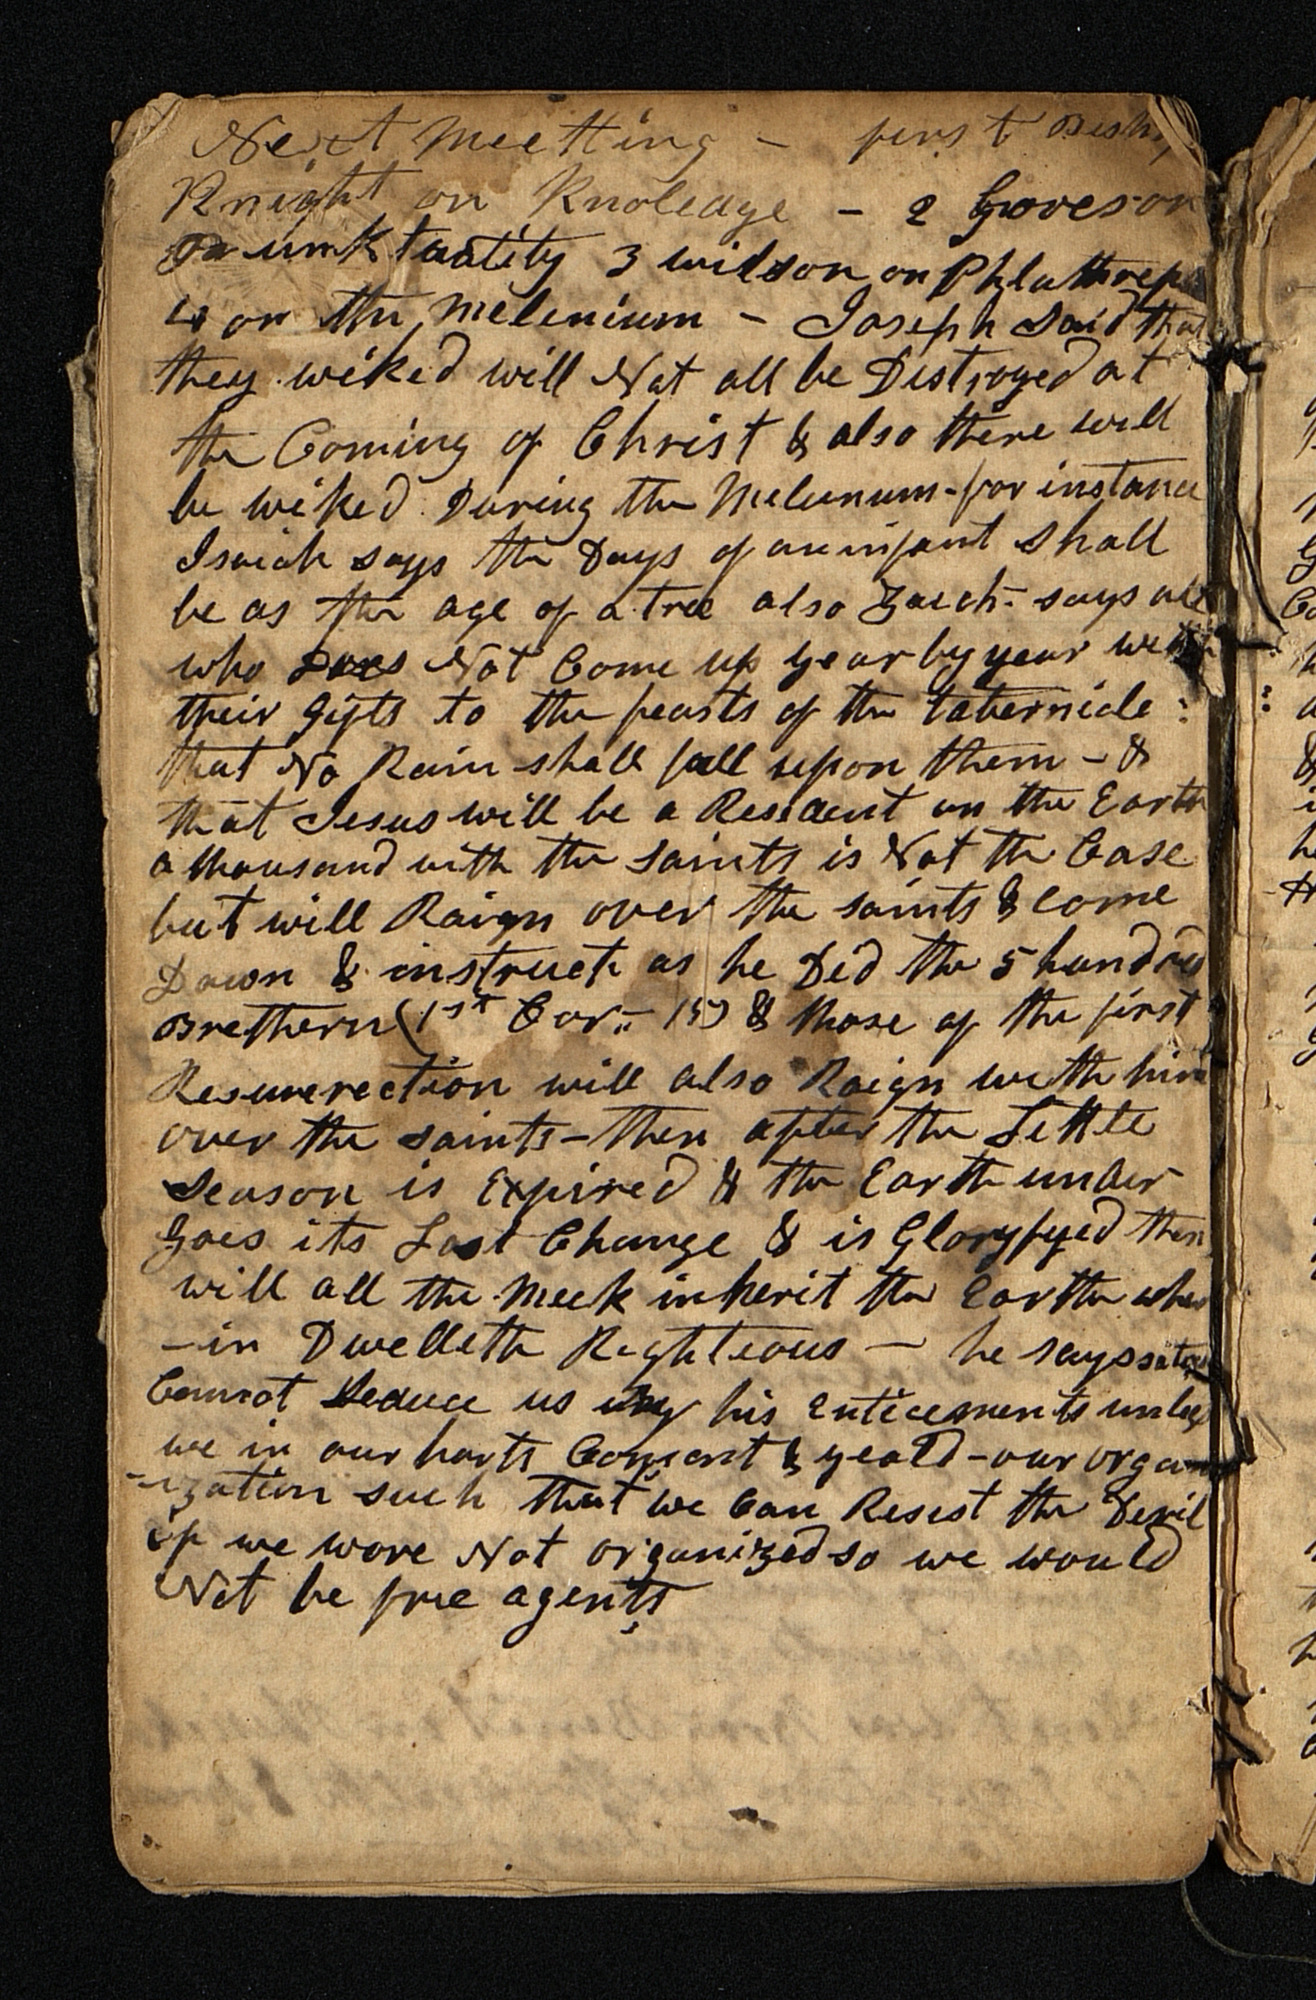 Next Meetting – first Bishop
Knight on Knoledge – 2 Groves on
Punktuality 3 wilson on Phlathrep
4 on the Melenium – Joseph Said that
they wiked will Not all be Distroyed at
the Coming of Christ & also there will
be wiked During the Melenum – for instance
Isaiah says the Days of an infant shall
be as the age of a tree also Zach: says all
who Does Not Come up year by year with
their Gifts to the feasts of the tabernicle :
that No Rain shall fall upon them – &
that Jesus will be a Resident on the Earth
a thousand with the saints is Not the Case
but will Raign over the saints & come
Down & instruct as he Did the 5 hundred
Brethern (1st Cor.: 15) & those of the first
Resurerection will also Raign with him
over the saints – then after the Little
season is Expired & the Earth under
goes its Last Change & is Gloryfyed then
will all the Meek inherit the Earth wher
-in Dwelleth Righteous – he says satan
Cannot Seduce us by his Enticements unless
we in our harts Consent & yeald – our organ
-ization such that we Can Resest the Devil
if we wore Not organized so we would
Not be free agents